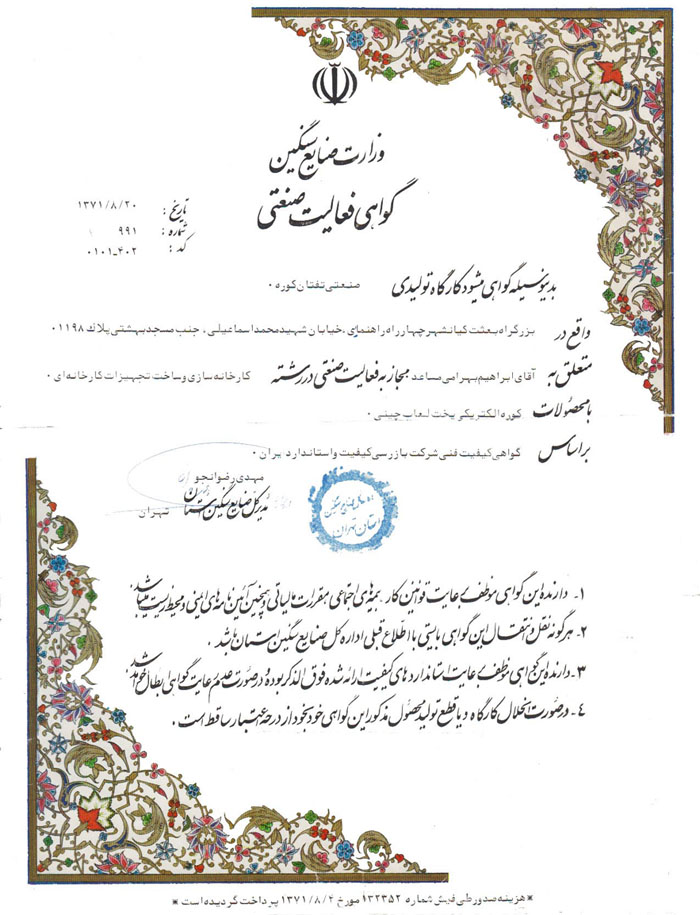 وزارت صنایع سنگین
گواهی فعالیت صنعتی
تاریخ : ۱۳۷۱/۸/۲۰
شماره : ۹۹۱
کد : ۰۱۰۱-۴۰۲
بدینوسیله گواهی میشود کارگاه تولیدی صنعتی تفتان کوره ۰
واقع در بزرگراه بعثت کیانشهر چهارراه راهنمای ، خیابان شهید محمد اسماعیلی ، جنب مسجد بهشتی پلاک ۰۱۱۹۸
متعلق به آقای ابراهیم بهرامی مساعد مجاز به فعالیت صنعتی در رشته کارخانه سازی و ساخت تجهیزات کارخانه ای ۰
با محصولات کوره الکتریکی پخت لعاب چینی ۰
براساس گواهی کیفیت فنی شرکت بازرسی کیفیت و استاندارد یران ۰
مهدی رضوانجو
مدیر کل صنایع سنگین استان تهران
اداره کل صنایع سنگین
استان تهران
۱- دارنده این گواهی موظف برعایت قوانین کار بیمه های اجتماعی مقررات مالیاتی و همچنین آئین نامه های ایمنی و محیط زیست میباشد.
۲- هرگونه نقل و انتقال این گواهی بایستی با اطلاع قبلی اداره کل صنایع سنگین استان باشد .
۳- دارنده این گواهی موظف برعایت استانداردهای کیفیت ارائه شده فوق الذکر بوده و در صورت عدم رعایت گواهی ابطال خواهد شد
۴- در صورت انحلال کارگاه و یا قطع تولید محصول مذکور این گواهی خودبخود از درجه اعتبار ساقط است .
* هزینه صدور طی فیش شماره ۱۳۲۳۵۲ مورخ ۱۳۷۱/۸/۴ پرداخت گردیده است *